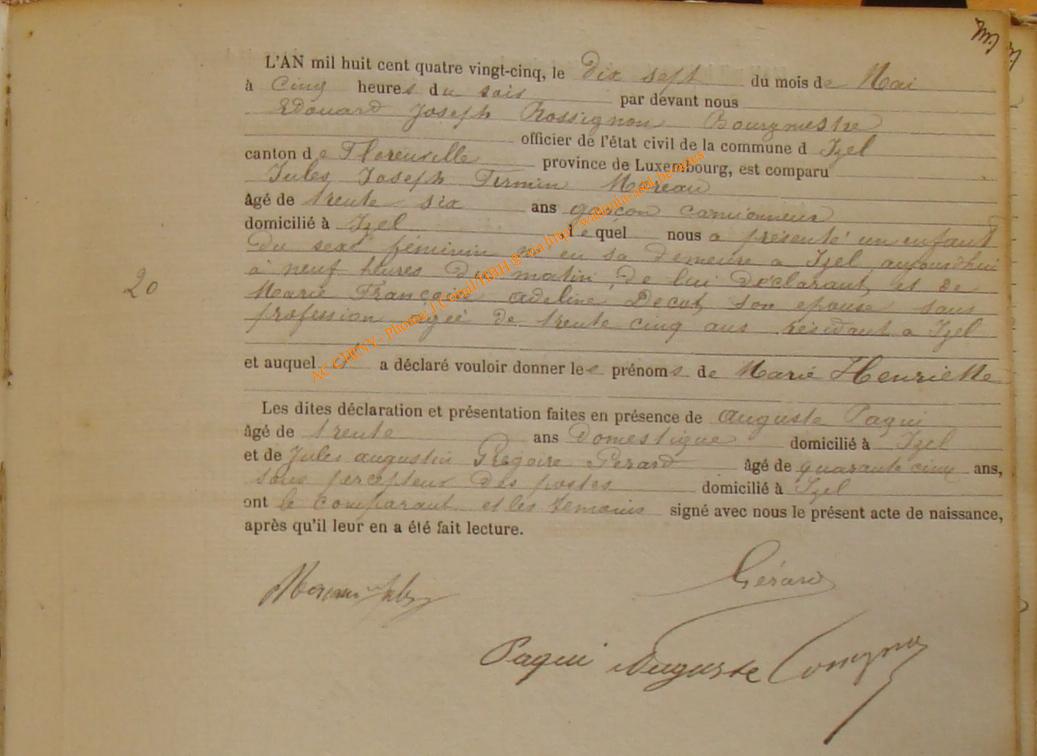 L'AN mil huit cent quatre vingt-cinq, le dix sept du mois de Mai
à cinq heures du soir par devant nous
Edouard Joseph Rossignon Bourgmestre
officier de l'état civil de la commune d Izel
canton de Florenville province de Luxembourg, est comparu
Jules Joseph Firmin Moreau
âgé de trente six ans garçon camionneur
domicilié à Izel lequel nous a présenté un enfant
du sexe féminin né en sa demeure a Izel aujourdhui
à neuf heures du matin, de lui déclarant, et de
Marie François adeline Decot, son epouse sans
20
profession agée de trente cinq ans résidant a Izel
et auquel il a déclaré vouloir donner les prénoms de Marie Henriette
Les dites déclaration et présentation faites en présence de Auguste Paqui
âgé de trente ans Domestique domicilié à Izel
et de Jules augustin Grégoire Gerard âgé de quarante cinq ans,
sous percepteur des postes domicilié à Izel
ont le comparant et les temoins signé avec nous le présent acte de naissance,
après qu'il leur en a été fait lecture.
Gérard
Moreau
Paqui Auguste
AC CHINY - Photo J.